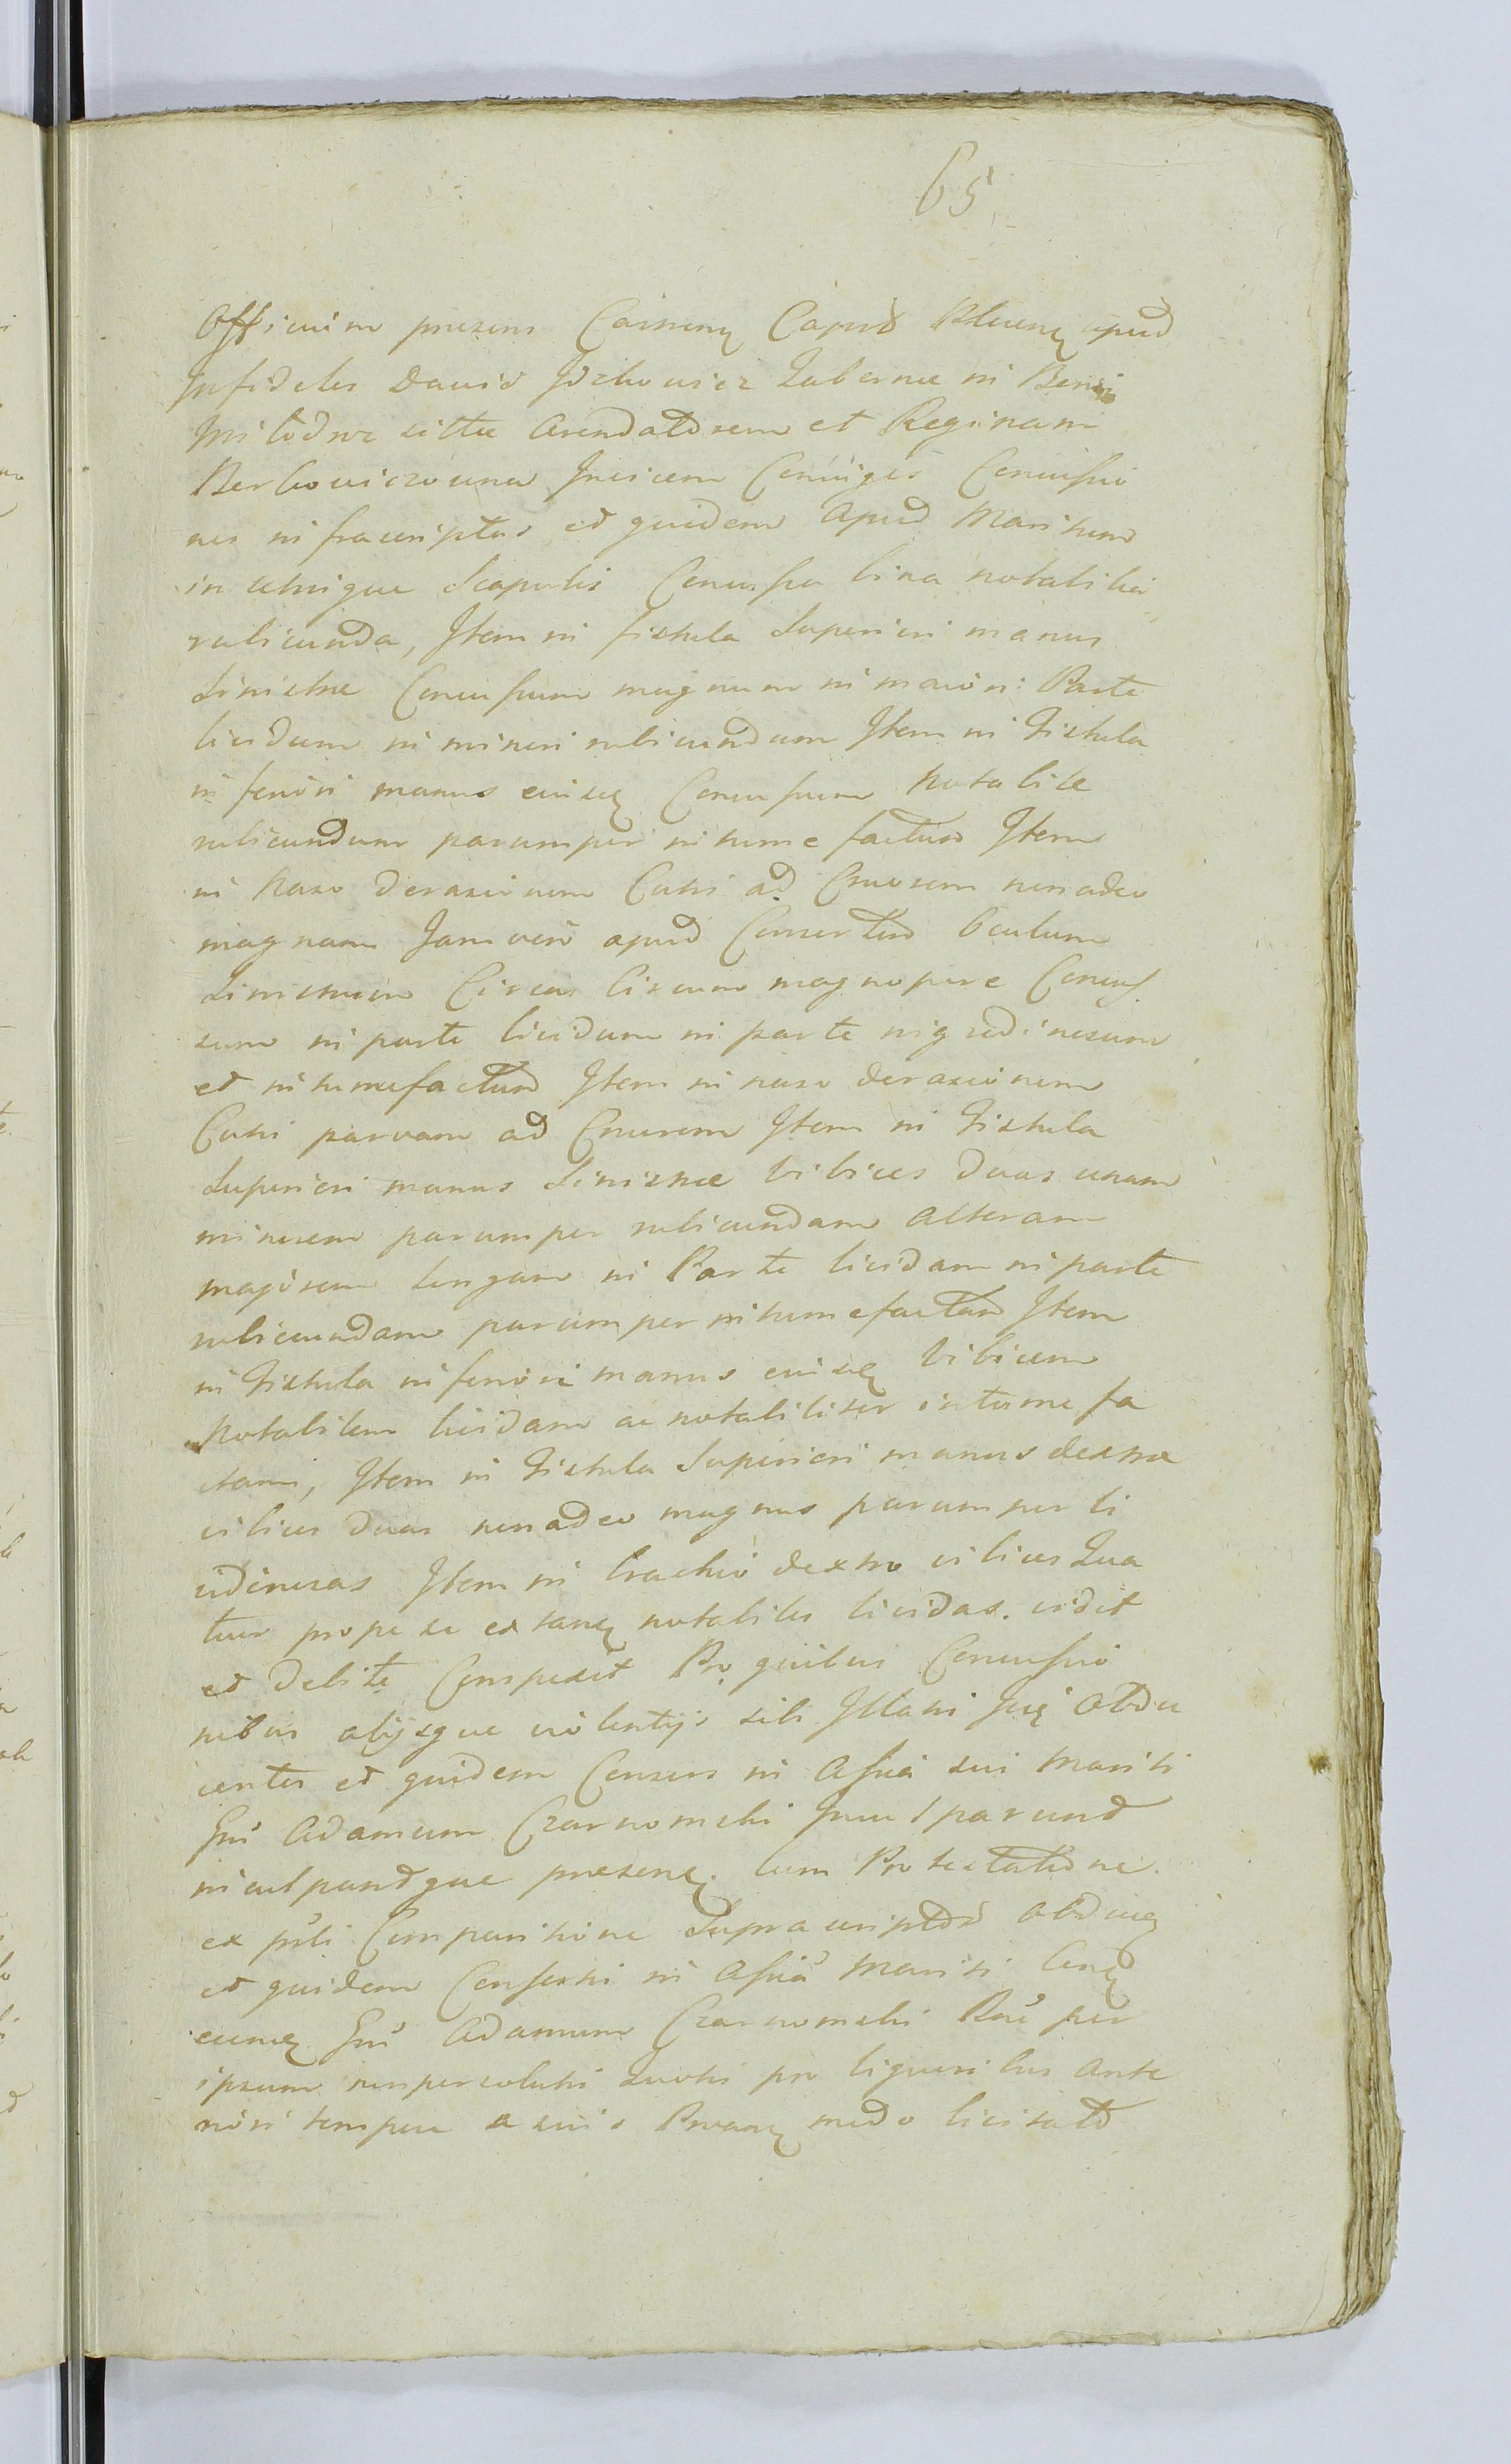 65
Officium presens Castrense Capit Relicense apud
Infideles David Joskowicz Tabernae in Bonis
sittae Arendatorem et Reginam
Berkowiczowna Invicem Coniuges Concussio
nes infrascriptas et quidem apud Maritum
in utrisque Scapulis Concussa bina notabilia
rubicunda, Item in fistula Superiori manus
Sinistrae Concussum magnum in maiori Parte
lividum in minori rubicundum Item in Fistula
inferiori manus eiusdem Concussum Notabile
rubicundum parumper intumefactum Item
in Naso derasionem Cutis ad Cruorem non adeo
magnam Jam vero apud Consortem Oculum
Sinistrum Circum Circum magnopere Concus
sum in parte lividum in parte nigredinosum
et intumefactum Item in naso derasionem
Cutis parvam ad Cruorem Item in Fistula
Superiori manus Sinistrae Vibices duas unam
minorem parumper rubicundam alteram
majorem longam in Parte lividam in parte
rubicundam parumper intumefactam Item
in Fistula inferiori manus eiusdem Vibicem
Notabilem lividam ac notabiliter intumefa
ctam, Item in Fistula Superiori manus dextrae
vibices duas non adeo magnas parumper li
vidinosas Item in brachio dextro vibices Qua
tuor prope se extantes notabiles lividas. vidit
et debite Conspexit Pro quibus Concussio
nibus alijsque violentijs sibi Illatis
et quidem Consors in Assia sui Mariti
Gnm Adamum Czarnomski Inculparunt
inculpantque presentes. Cum Protestatione.
ex parte Comparitione Supra scriptor
et quidem Consortis in Assia Mariti Contra
eundem Gnm Adamum Czarnomski per
ipsum non persoluti pro liquoribus ante
riori tempore a suis modo licitato